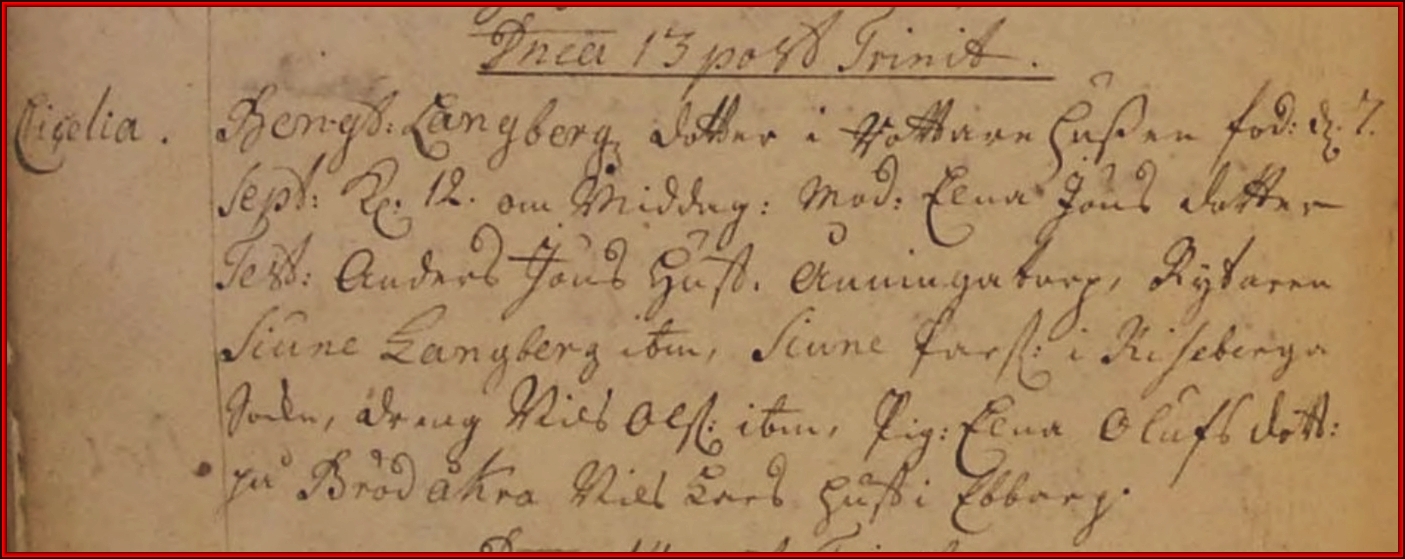 Dnca 13 post Trinit.
Cicelia. Bengt: Langberg dotter i Pottare Hußen fod: d. 7.
Sept: Kl. 12. om Middag: Mod: Elna Jöns dotter
Test: Anders Jöns Hust. Anningatorp, Rytaren
Siune Langberg ibm, Siune Pars: i Riseberga
Sokn, dreng Nils Ols: ibm, Pig: Elna Olufs dott:
på Brödåkra Nils Lars Hust i Ebbarp.